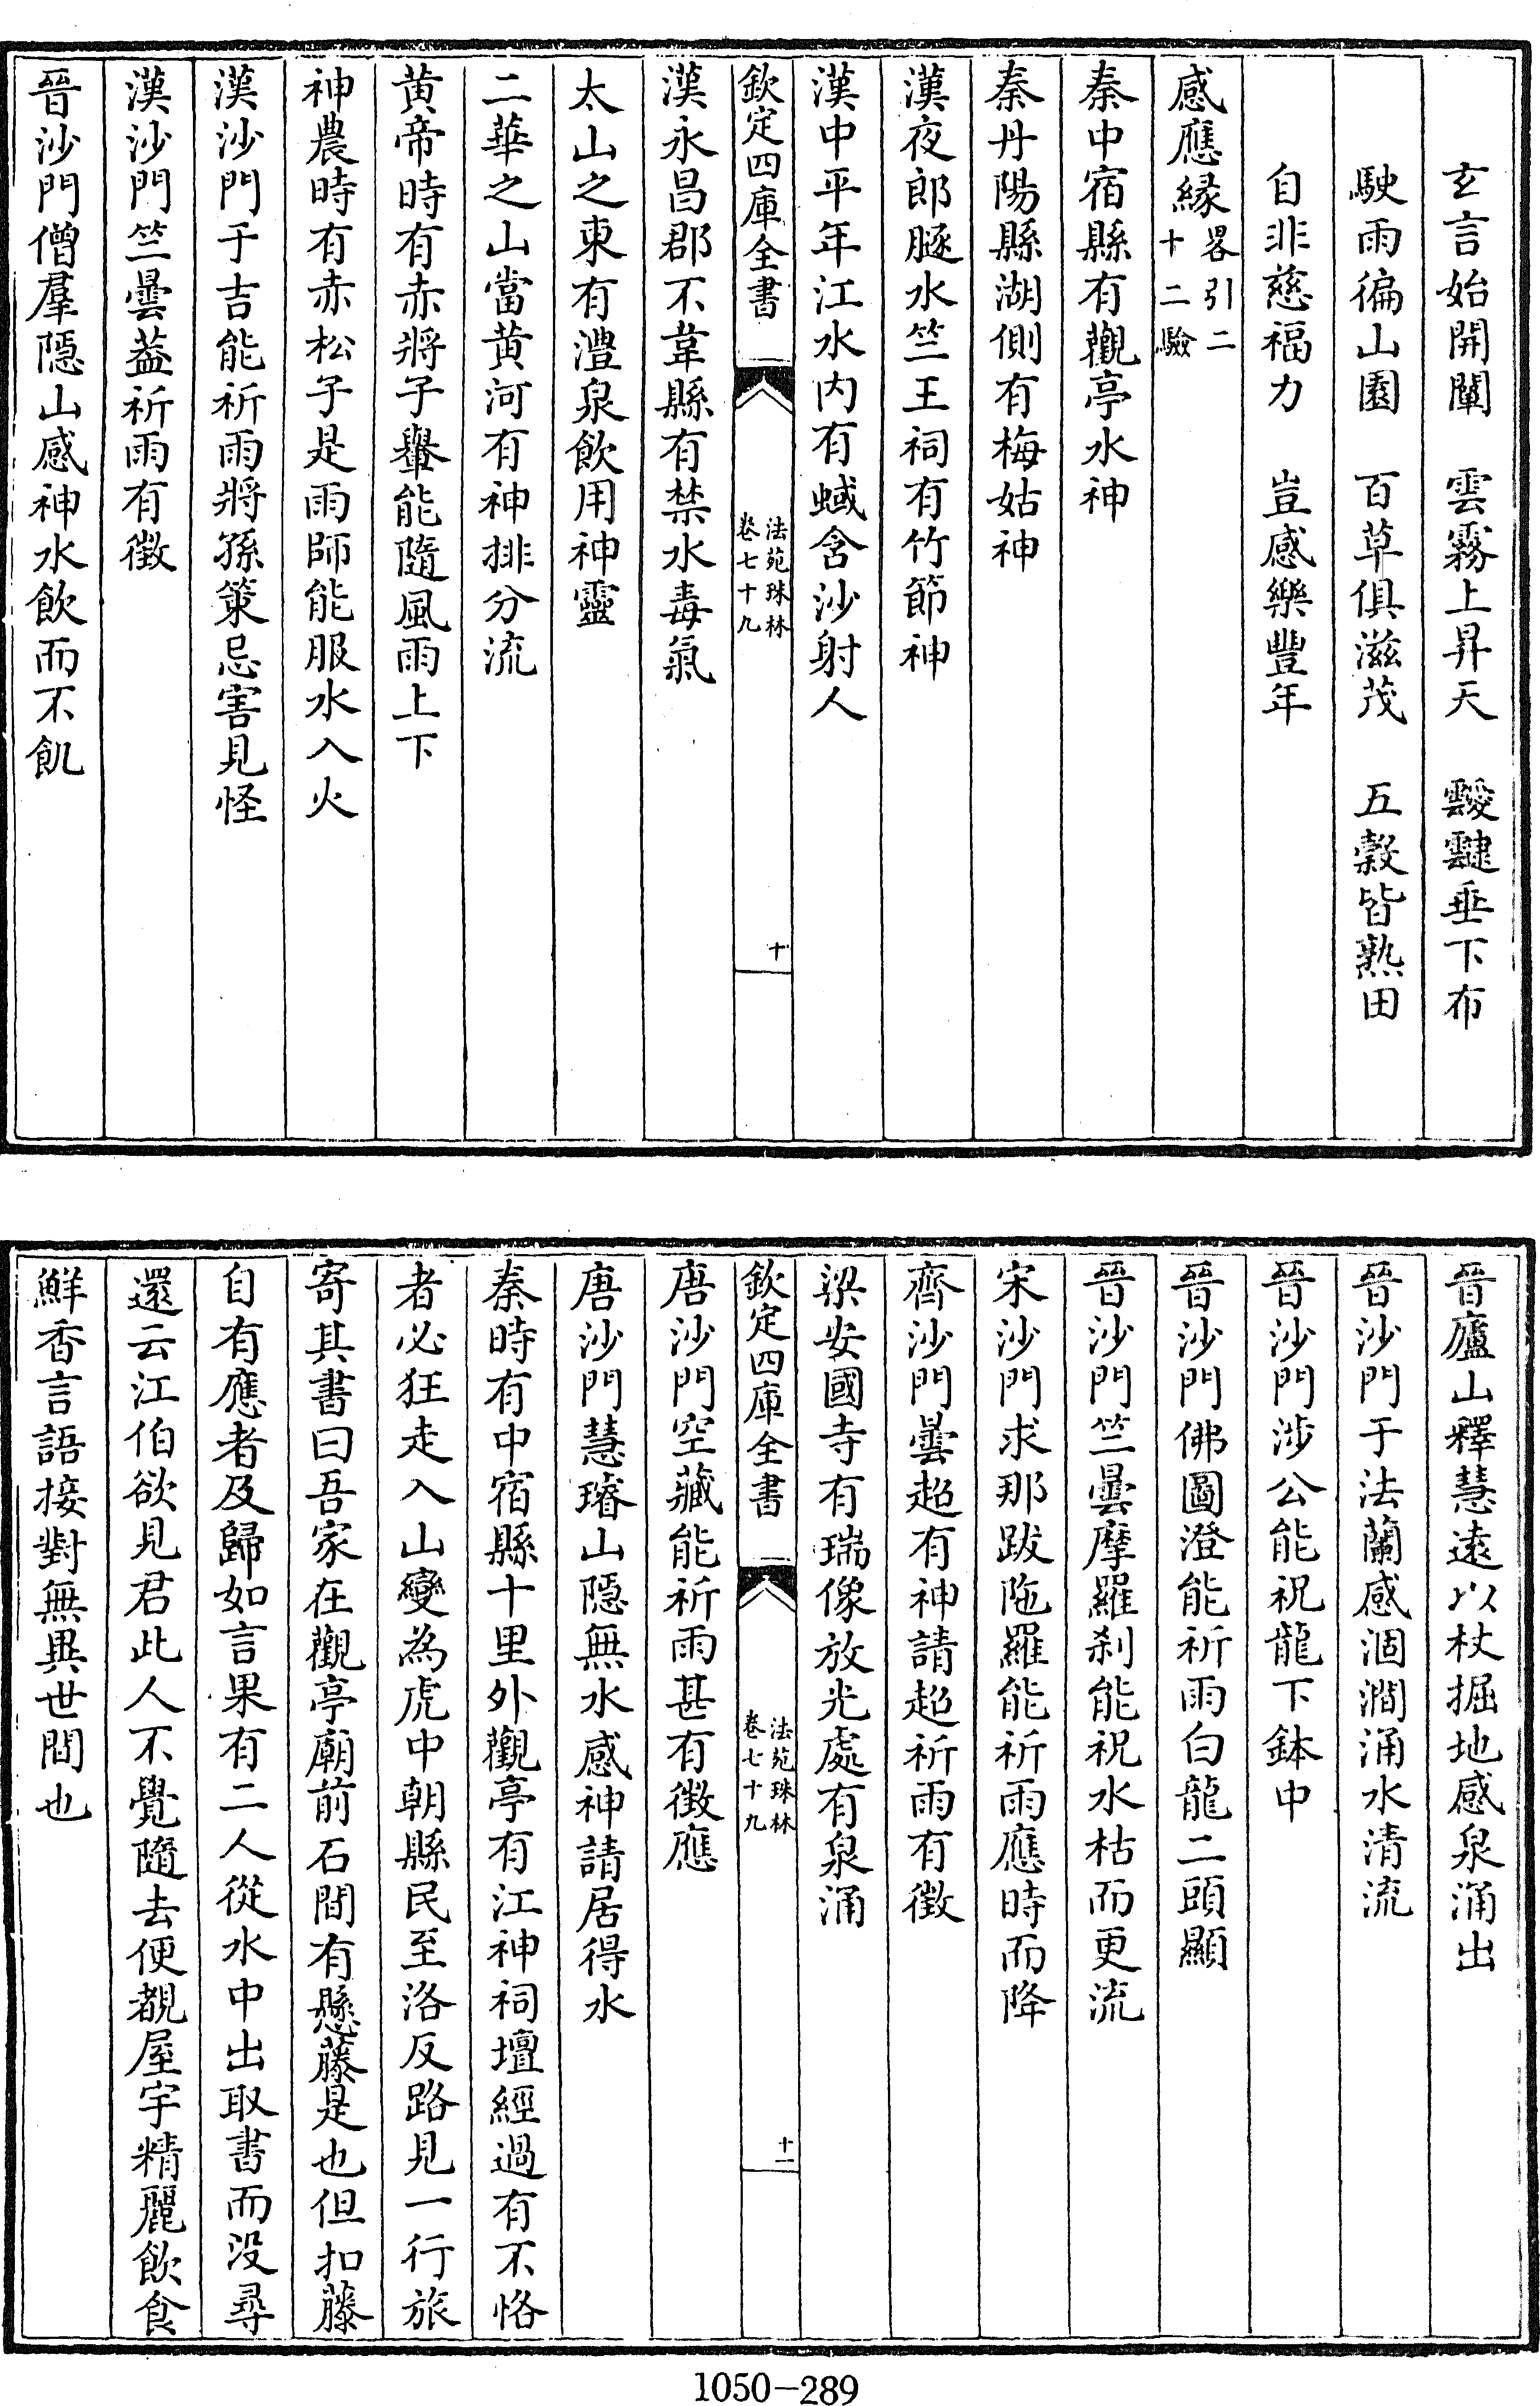 玄言始開闡　雲霧上昇天　靉靆垂下布
駛雨徧山園　百草俱滋茂　五穀皆熟田
自非慈福力　豈感樂豐年
感應緣畧引二十二驗
秦中宿縣有觀亭水神
秦丹陽縣湖側有梅姑神
漢夜郎豚水竺王祠有竹節神
漢中平年江水内有蜮含沙射人
欽定四庫全書　法苑珠林卷七十九　十
漢永昌郡不韋縣有禁水毒氣
太山之東有澧泉飲用神靈
二華之山當黄河有神排分流
黄帝時有赤將子轝能隨風雨上下
神農時有赤松子是雨師能服水入火
漢沙門于吉能祈雨將孫策忌害見怪
漢沙門竺曇葢祈雨有徵
晉沙門僧羣隱山感神水飲而不飢
晉廬山釋慧遠以杖掘地感泉涌出
晉沙門于法蘭感涸澗涌水清流
晉沙門涉公能祝龍下鉢中
晉沙門佛圖澄能祈雨白龍二頭顯
晉沙門竺曇摩羅刹能祝水枯而更流
宋沙門求那跋陁羅能祈雨應時而降
齊沙門曇超有神請超祈雨有徵
梁安國寺有瑞像放光處有泉涌
欽定四庫全書　法苑珠林卷七十九　十一
唐沙門空藏能祈雨甚有徵應
唐沙門慧璿山隱無水感神請居得水
秦時有中宿縣十里外觀亭有江神祠壇經過有不恪
者必狂走入山變為虎中朝縣民至洛反路見一行旅
寄其書曰吾家在觀亭廟前石間有懸藤是也但扣藤
自有應者及歸如言果有二人從水中出取書而没尋
還云江伯欲見君此人不覺隨去便覩屋宇精麗飲食
鮮香言語接對無異世間也
1050-289